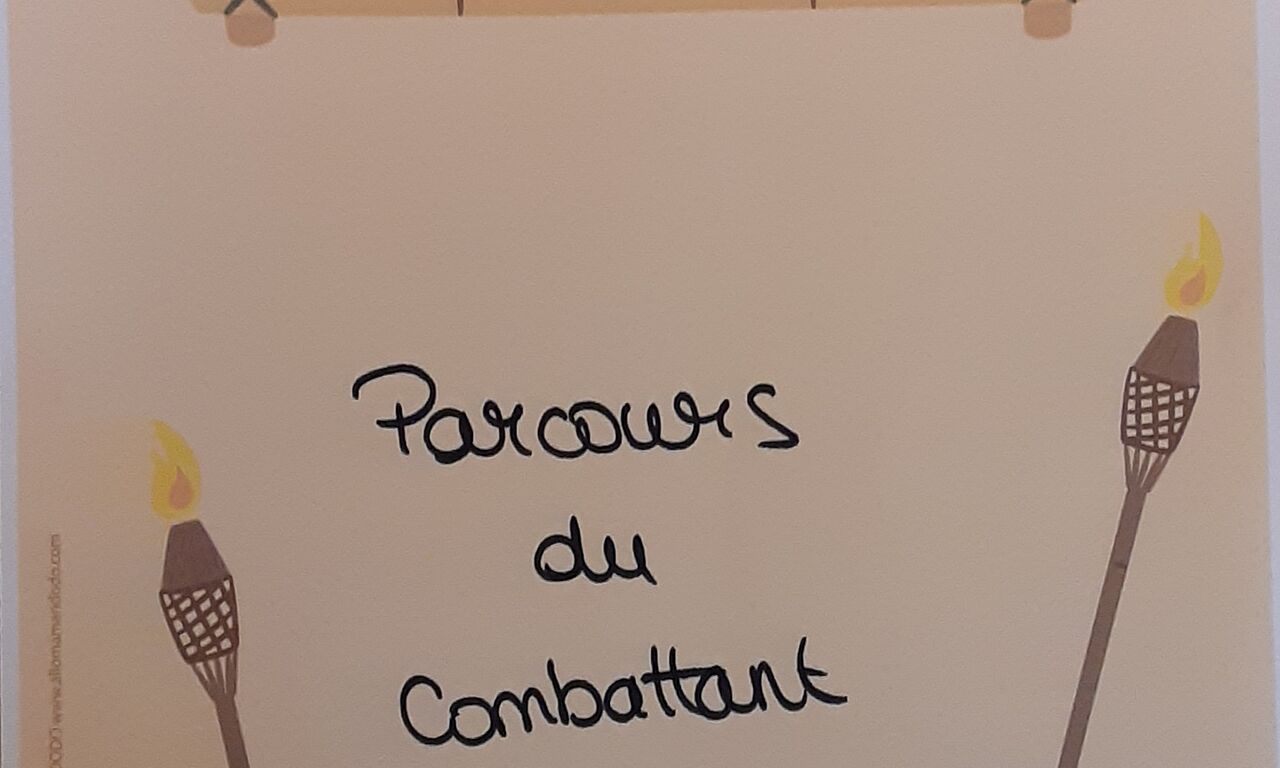 Parcours
du
Combattant
www.allomamandodo.com